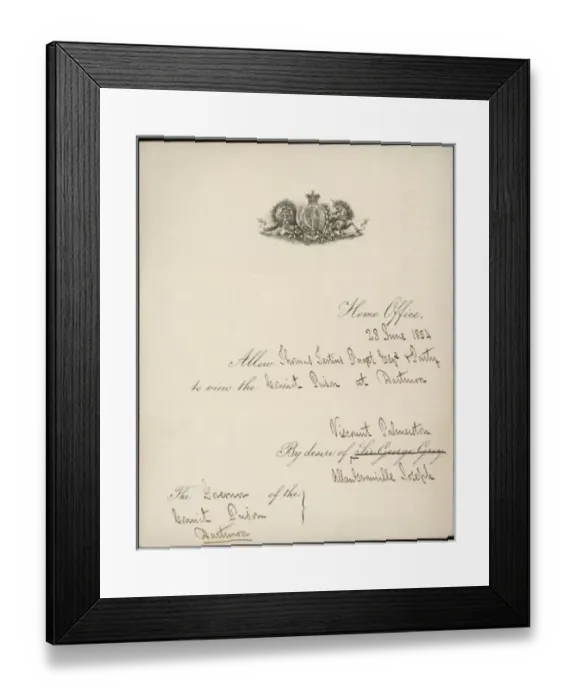 Home Office,
28 June 1854
Allow Thomas Esqre & Party
to view the Convict Prison at Dartmoor
Viscount Palmerston
By desire of Sir George Grey
The Governor of the
Convict Prison
Dartmoor